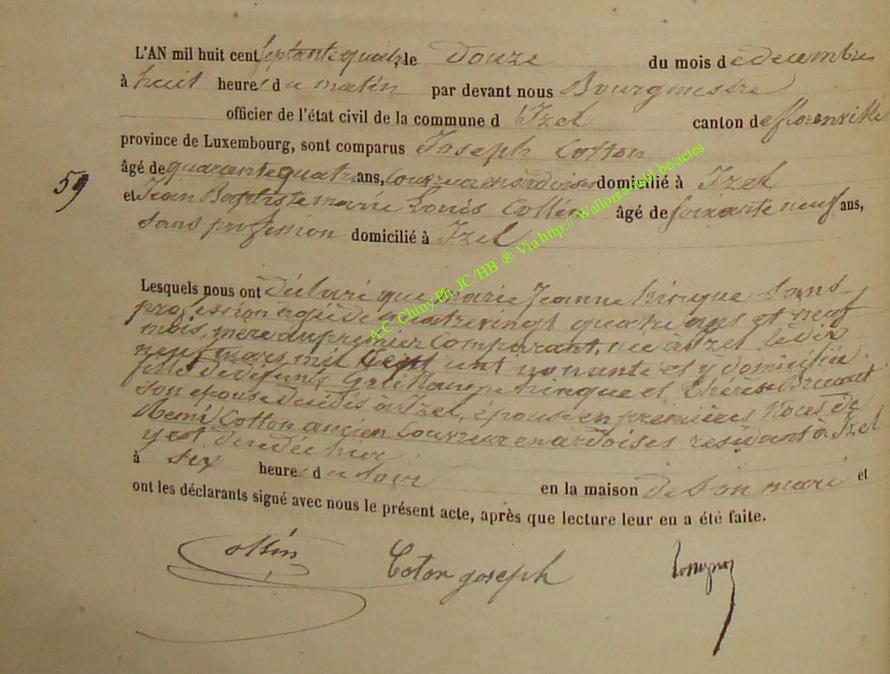 L'AN mil huit cent septante quatre, le douze du mois de decembre
à huit heures du matin par devant nous Bourgmestre
officier de l'état civil de la commune d'Izel canton de florenville
province de Luxembourg, sont comparus Joseph Cotton
âgé de quarante quatre ans, Couvreur en ardoises domicilié à Izel
59
et Jean Baptiste marie Louis Collin âgé de soixante neuf ans,
sans profession domicilié à Izel
Lesquels nous ont déclaré que marie Jeanne hinque sans
profession agée de quatrevingt quatre ans et neuf
mois, mère du premier Comparant, née à Izel le dix
neuf mars mil sept cent nonante et y domiciliée
fille de défunts Guillaume hinque et Thérèse
son epouse décédés à Izel, epouse en premières Noces de
Remi Cotton ancien Couvreur en ardoises residant à Izel
y est décédée hier
à six heures du soir en la maison de son mari et
ont les déclarants signé avec nous le présent acte, après que lecture leur en a été faite.
Collin Coton joseph
A.C. Chiny Ph. JC/HB ® Via http://Wallonia1891.be/actes